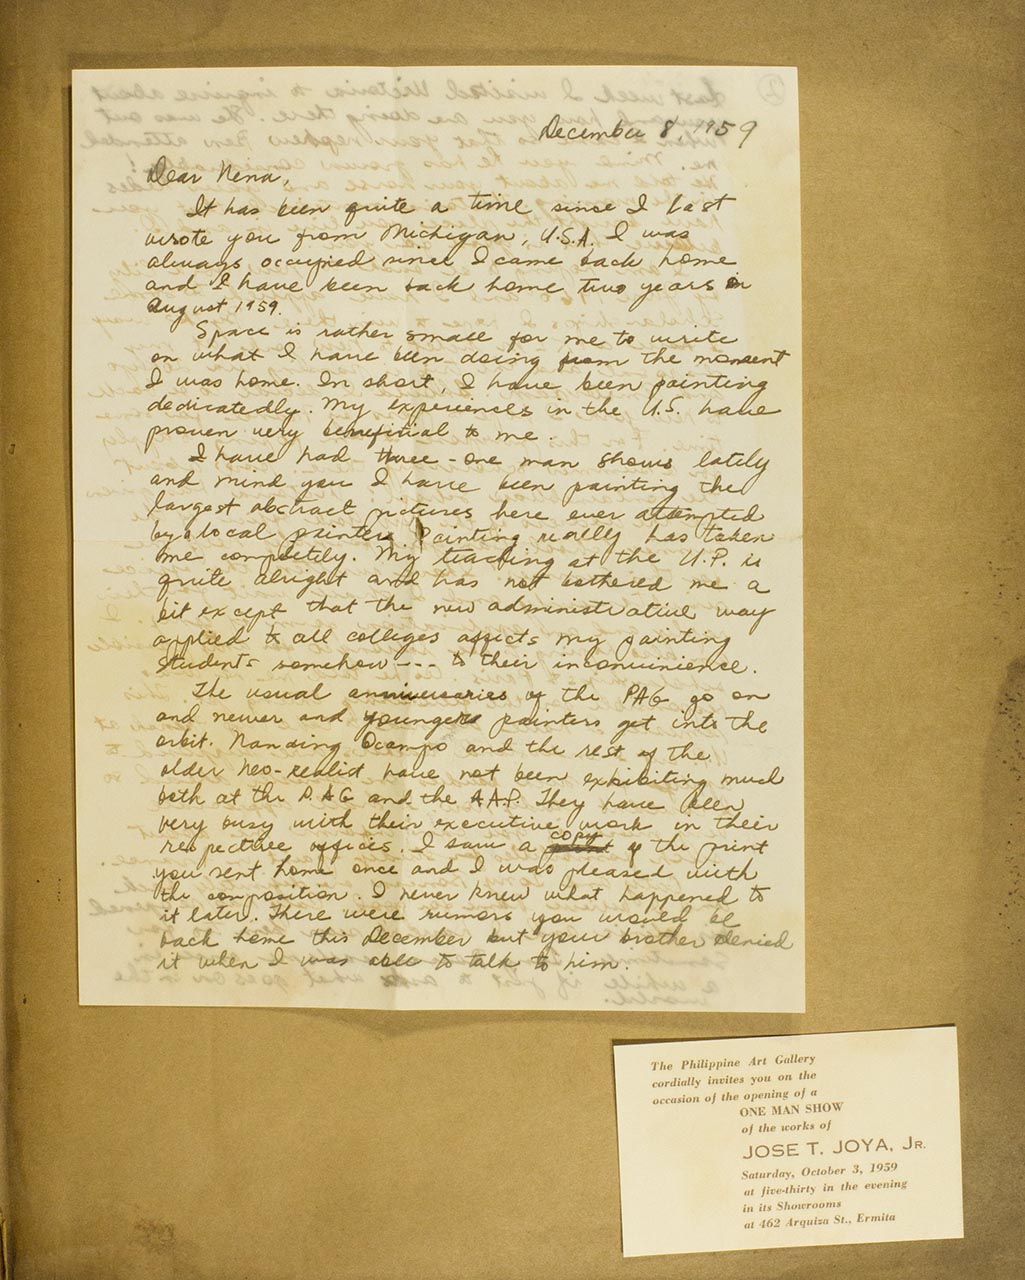 December 8, 1959
Dear Nena,
It has been quite a time since I last
wrote you from Michigan, U.S.A. I was
always occupied since I came back home
and I have been back home two years in
August 1959.
Space is rather small for me to write
on what I have been doing from the moment
I was home. In short, I have been painting
dedicatedly. My experiences in the U.S. have
proven very beneficial to me.
I have had three - one man shows lately
and mind you I have been painting the
largest abstract pictures here ever attempted
by local painters. Painting really has taken
me completely. My teaching at the U.P. is
quite alright and has not bothered me a
bit except that the new administrative way
applied to all colleges affects my painting
students somehow --- to their inconvinience.
The usual anniversaries of the PAG go on
and newer and younger painters get into the
orbit. Nanding Ocampo and the rest of the
older neo-realist have not been exhibiting much
both at the P.AG and the A.A.P. They have been
very busy with their executive work in their
respective offices. I saw a copy of the print
you sent home once and I was pleased with
the composition. I never knew what happened to
it later. There were rumors you would be
back home this December but your brother denied
it when I was able to talk to him.
The Philippine Art Gallery
cordially invites you on the
occasion of the opening of a
ONE MAN SHOW
of the works of
JOSE T. JOYA, JR.
Saturday, October 3, 1959
at five-thirty in the evening
in its Showrooms
at 462 Arquiza St., Ermita